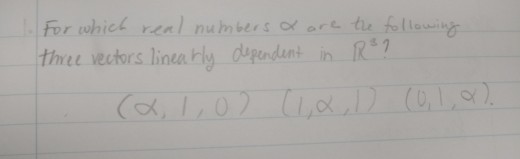 1. For which real numbers α are the following
three vectors linearly dependent in R³?
(α, 1, 0) (1, α, 1) (0, 1, α).